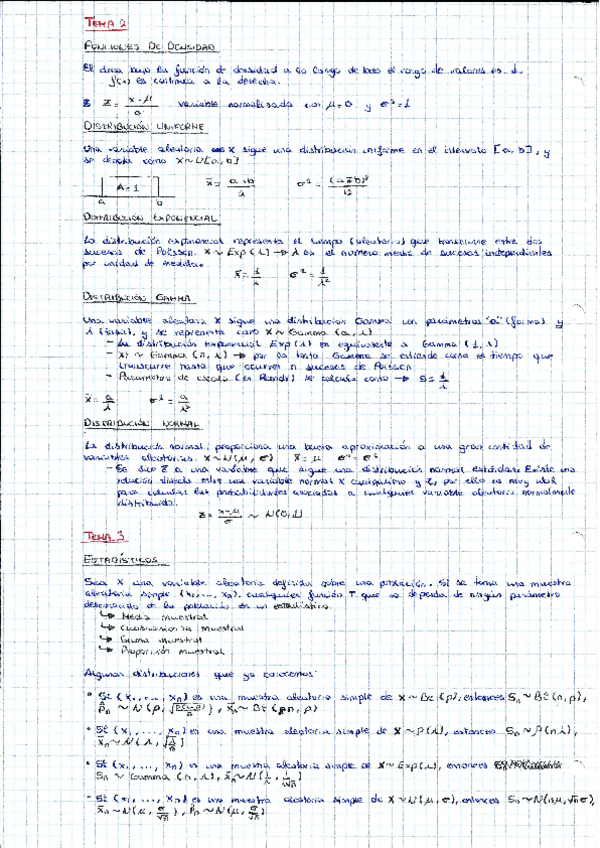 TEMA 2
FUNCIONES DE DENSIDAD
El área bajo la función de densidad a lo largo de todo el rango de valores es 1.
f(x) es continua a la derecha.
Z = x-μ / σ variable normalizada con μ=0 y σ²=1
DISTRIBUCIÓN UNIFORME
Una variable aleatoria X sigue una distribución uniforme en el intervalo [a, b], y
se denota como X~U[a, b]
A=1 x̄ = a+b / 2 σ² = / 12
a b
DISTRIBUCIÓN EXPONENCIAL
La distribución exponencial representa el tiempo (aleatorio) que transcurre entre dos
sucesos de Poisson. X~Exp(λ) → λ es el número medio de sucesos independientes
por unidad de medida.
x̄ = 1/λ σ² = 1/λ²
DISTRIBUCIÓN GAMMA
Una variable aleatoria X sigue una distribución Gamma con parámetros "a" (forma) y
λ (tasa), y se representa como X~Gamma(a, λ)
- La distribución exponencial Exp(λ) es equivalente a Gamma(1, λ)
- X ~ Gamma(n, λ) → por lo tanto, Gamma se entiende como el tiempo que
transcurre hasta que ocurren n sucesos de Poisson
- Parámetro de escala (en Rcmdr) se calcula como → S = 1/λ
x̄ = a/λ σ² = a/λ²
DISTRIBUCIÓN NORMAL
La distribución normal proporciona una buena aproximación a una gran cantidad de
variables aleatorias. X~N(μ, σ) x̄ = μ σ² = σ²
- Se dice Z a una variable que sigue una distribución normal estándar. Existe una
relación directa entre una variable normal X cualquiera y Z, por ello es muy útil
para calcular las probabilidades asociadas a cualquier variable aleatoria normalmente
distribuida.
Z = x-μ / σ ~ N(0,1)
TEMA 3
ESTADÍSTICOS
Sea X una variable aleatoria definida sobre una población. Si se toma una muestra
aleatoria simple (x₁, ..., xₙ), cualquier función T que no dependa de ningún parámetro
desconocido de la población es un estadístico.
↳ Media muestral
↳ Cuasivarianza muestral
↳ Suma muestral
↳ Proporción muestral
Algunas distribuciones que ya conocemos:
• Si (x₁, ..., xₙ) es una muestra aleatoria simple de X~Be(p), entonces Sₙ~Bi(n, p),
• Si (x₁, ..., xₙ) es una muestra aleatoria simple de X~P(λ), entonces Sₙ~P(nλ),
• Si (x₁, ..., xₙ) es una muestra aleatoria simple de X~Exp(λ), entonces
Sₙ~Gamma(n, λ),
• Si (x₁, ..., xₙ) es una muestra aleatoria simple de X~N(μ, σ), entonces Sₙ~N(nμ, √nσ),